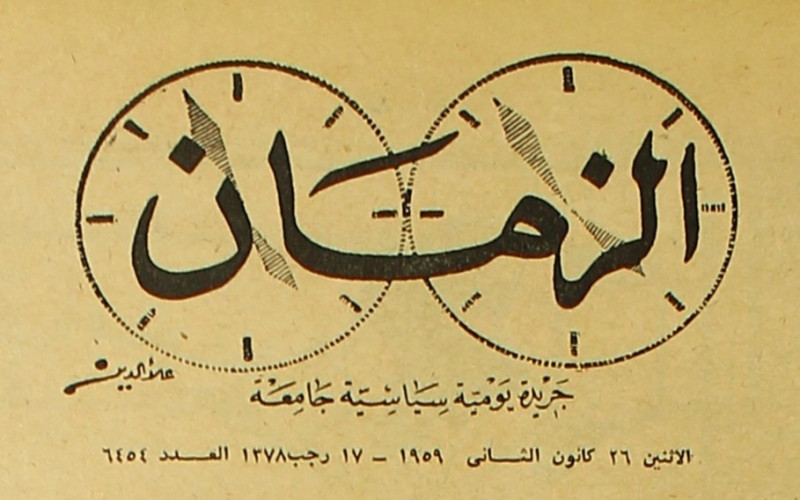 الزمان
علاء الدين
جَرِيْدة يَوْمِيّة سِيَاسِيّة جَامِعَة
الاثنين ٢٦ كانون الثـــانى ١٩٥٩ – ١٧ رجب ١٣٧٨ العـــدد ٦٤٥٤